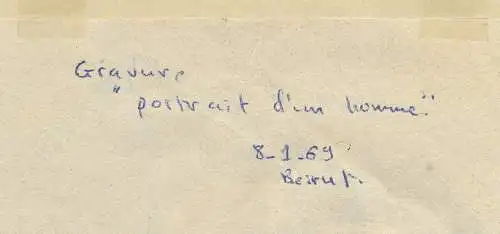 Gravure
"portrait d'un homme."
8-1-69
Beirut.